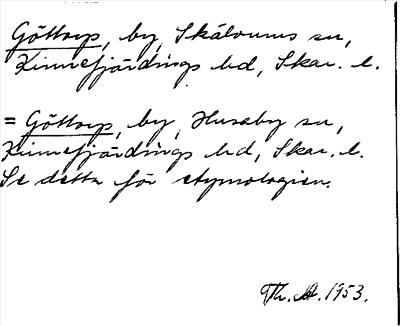 Göttorp, by, Skälvums sn,
Kinnefjärdings hd, Skar. l.
= Göttorp, by, Husaby sn,
Kinnefjärdings hd, Skar. l.
Se detta för etymologien.
Th. 1953.